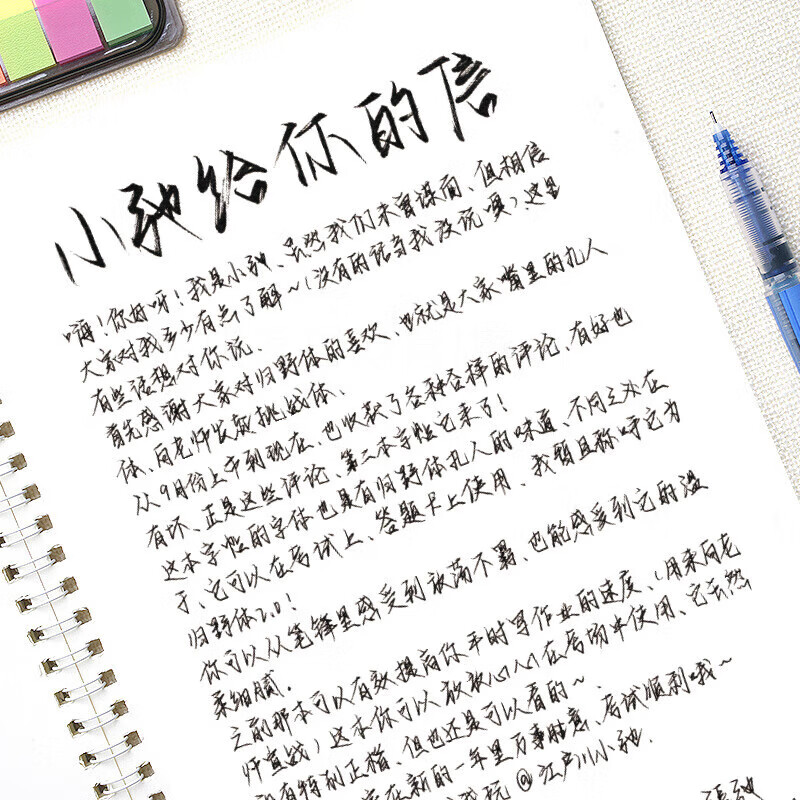 小驰给你的信
嗨！你好呀！我是小驰、虽然我们未曾谋面、但相信
大家对我多少有点了解～（没有的话当我没说，哭）、这是
有些话想对你说、
首先感谢大家对归野体的喜欢、也就是大家嘴里的扎人
体、向老师发起挑战体、
从9月份上市到现在、也收获了各种各样的评论、有好也
有坏、正是这些评论、第二本字帖它来了！
这本字帖的字体也具有归野体扎人的味道、不同之处在
于、它可以在考试上、答题卡上使用、我暂且称呼它为
归野体2.0！
你可以从笔锋里感受到放荡不羁、也能感受到它的温
柔细腻。
之前那本可以有效提高你平时写作业的速度、（用来向老
师宣战）这本你可以放放心心在考场中使用、它虽然
没有特别正楷、但也还是可以看的～
在新的一年里万事胜意、考试顺利哦～
玩@江户川小驰.